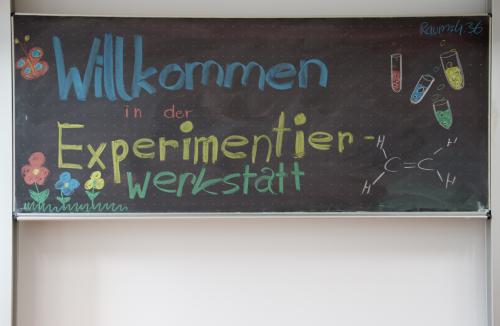 Willkommen
in der
Experimentier-
werkstatt
H H
C=C
H H